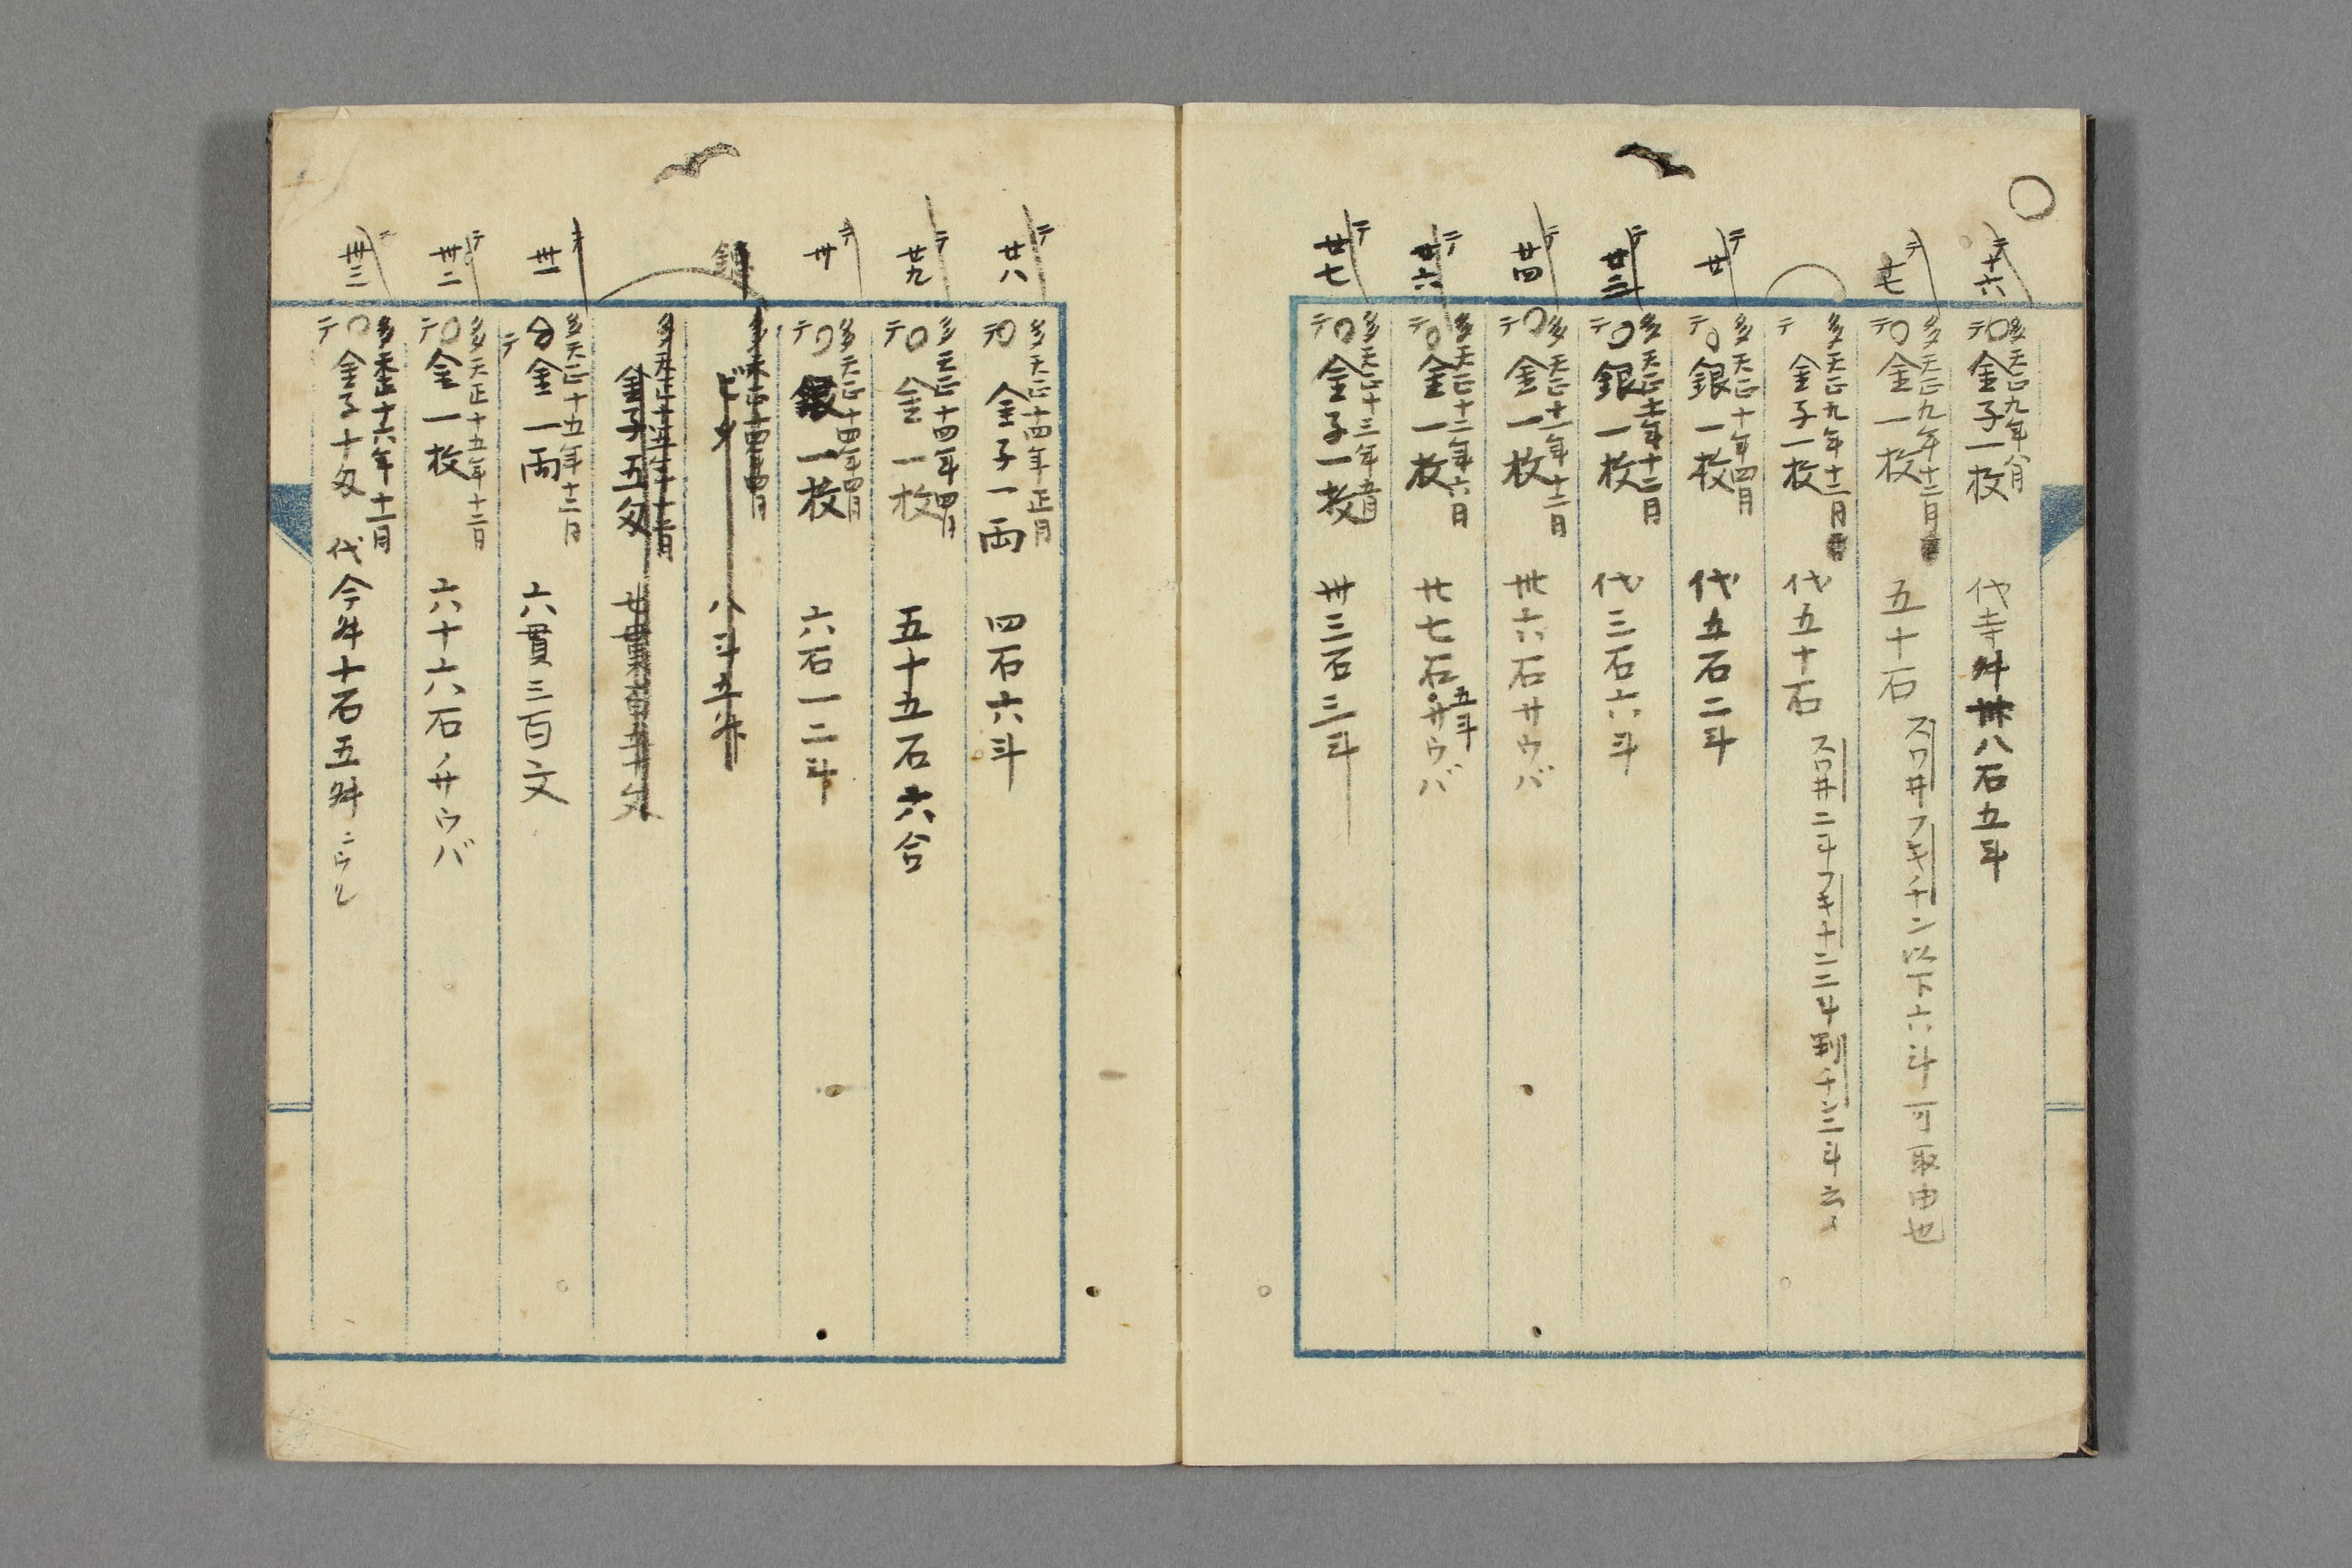 十六
多天正九年八月
金子一枚 代寺舛卅八石五斗
十七
多天正九年十二月
金一枚 五十石 スワ井フキチン以下六斗可取由也
多天正九年十二月
金子一枚 代五十石 スワ井二斗フキチン二斗判チン三斗
廿
多天正十年四月
銀一枚 代五石二斗
廿三
多天正十一年十二月
銀一枚 代三石六斗
廿四
多天正十一年十二月
金一枚 卅六石サウバ
廿六
多天正十二年六月
金一枚 廿七石五斗サウバ
廿七
多天正十三年
金子一枚 卅三石三斗
廿八
多天正十四年正月
金子一両 四石六斗
廿九
多天正十四年四月
金一枚 五十五石六合
卅
多天正十四年四月
銀一枚 六石一二斗
銀
多天正十四年四月
八斗五舛
金子五匁
卅一
多天正十五年十二月
金一両 六貫三百文
卅二
多天正十五年十二月
金一枚 六十六石ノサウバ
卅三
多天正十六年十二月
金子十匁 代今舛十石五舛ニウル